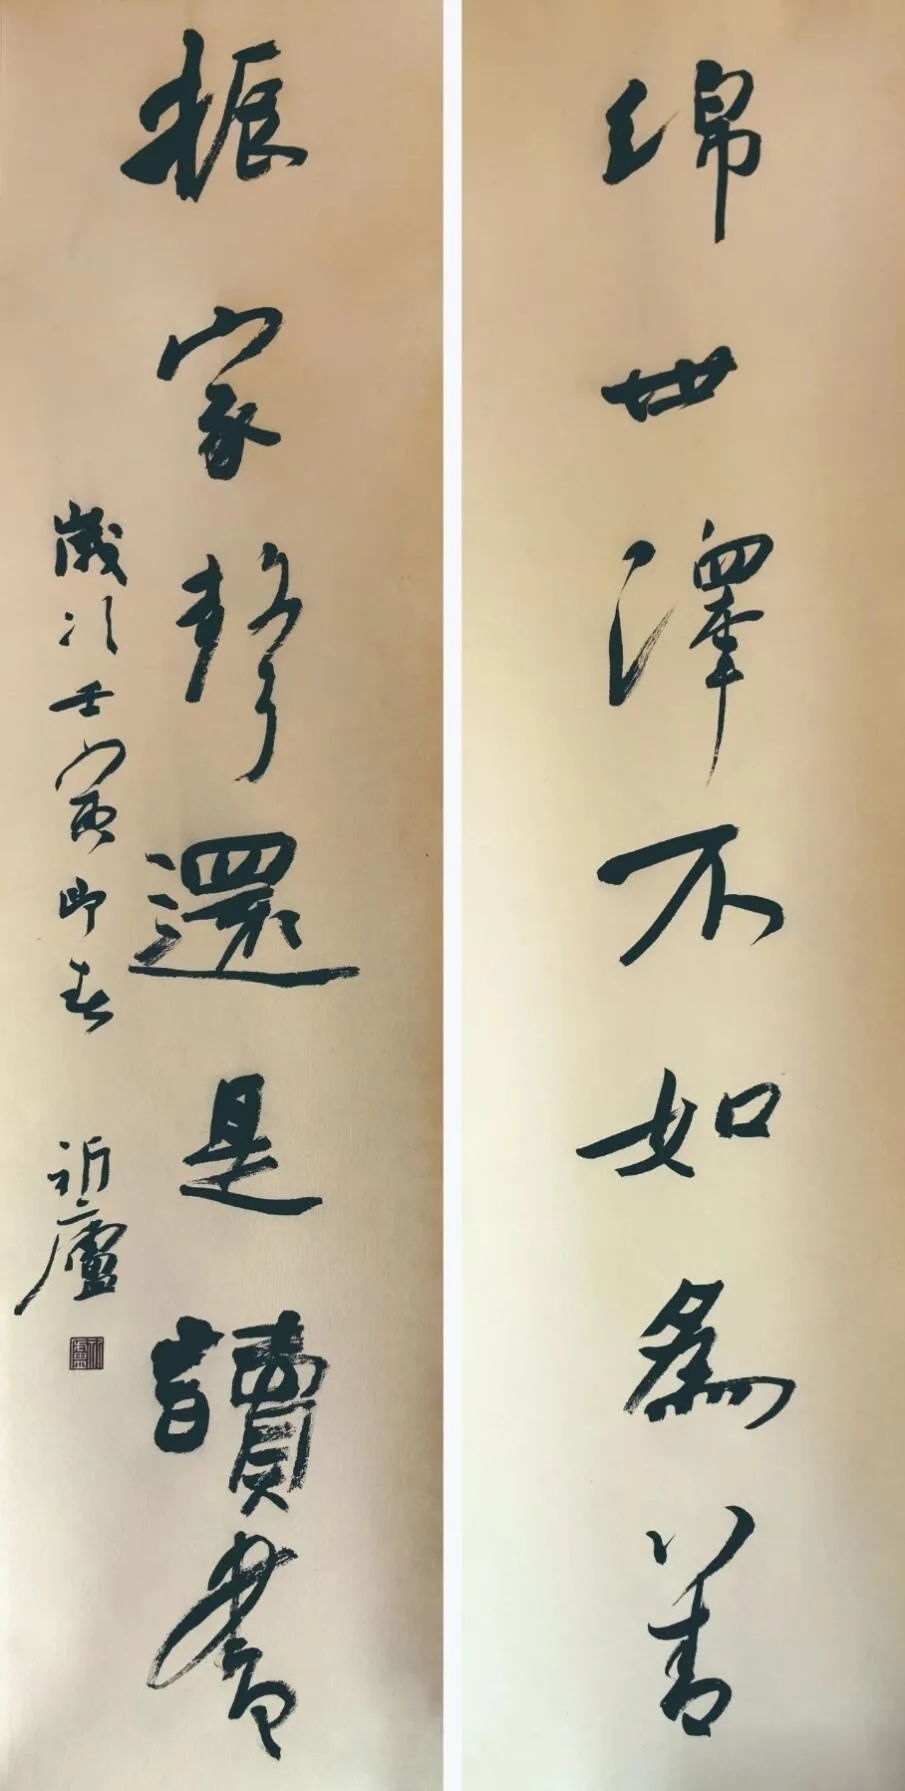 绵世澤不如為善
振家聲還是讀書
歲次壬寅仲春
祈廬